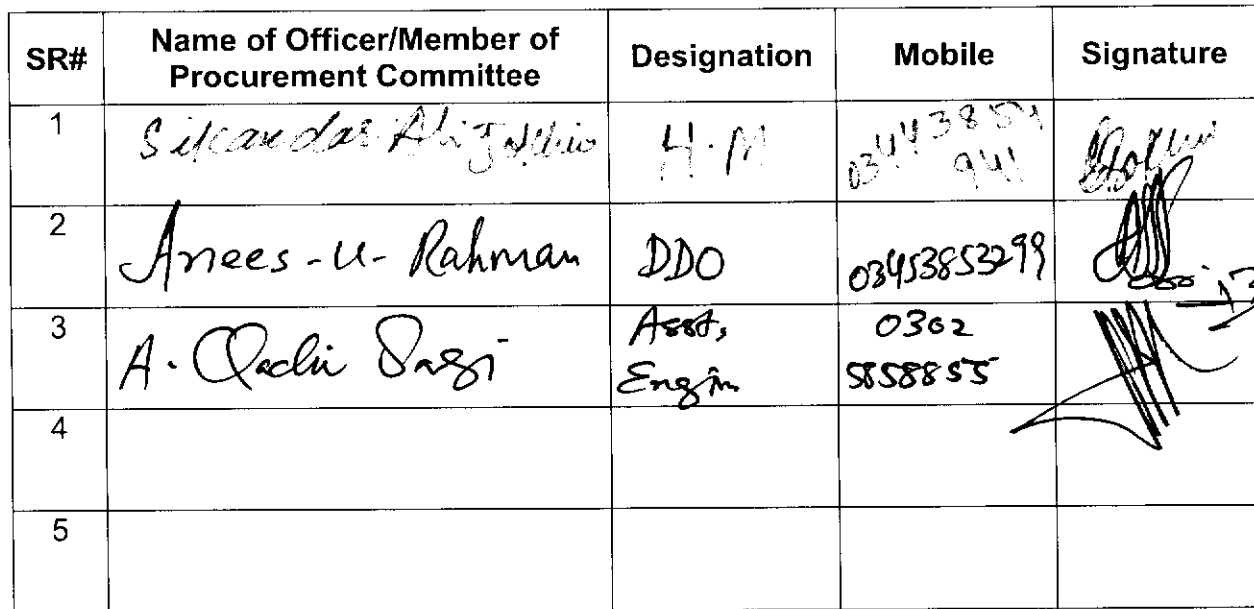 SR# Name of Officer/Member of Procurement Committee Designation Mobile Signature
1 Sikandar Ali H.M 0344 3859 941
2 Anees-u-Rahman DDO 03453853299
3 A. Qadir Asst, Engin 0302 5858855
4
5